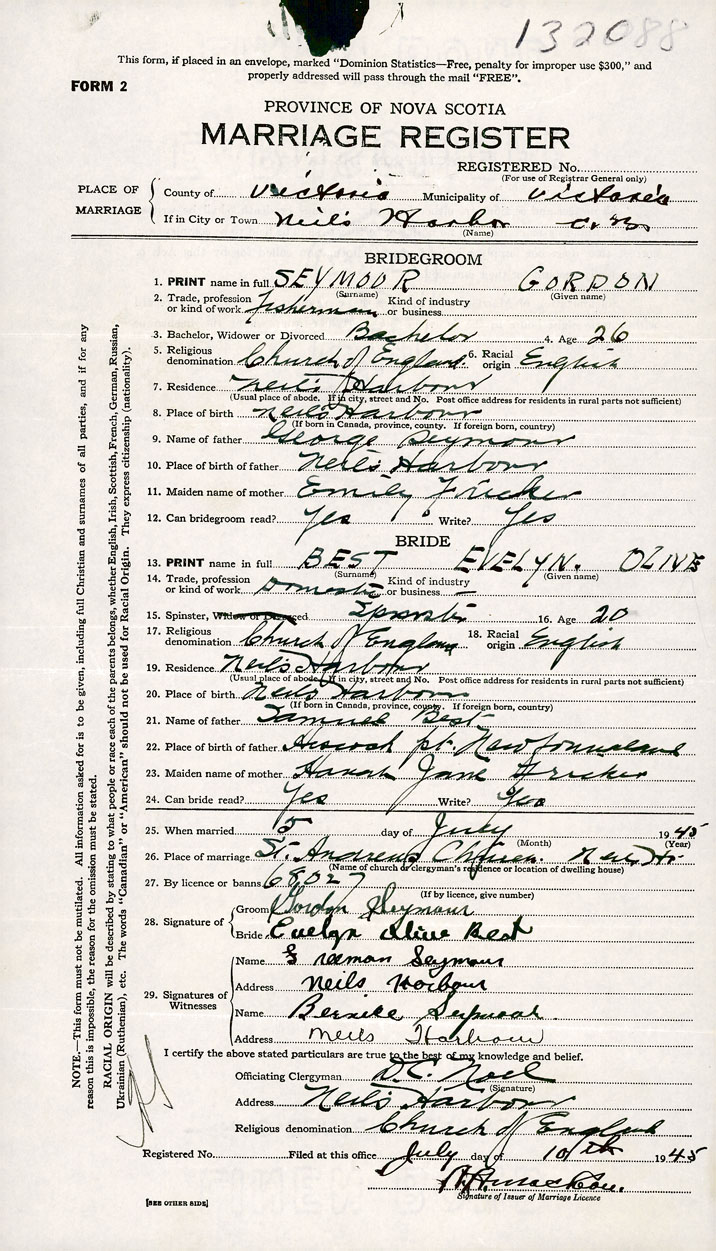 132088
This form, if placed in an envelope, marked "Dominion Statistics—Free, penalty for improper use $300," and
properly addressed will pass through the mail "FREE".
FORM 2
PROVINCE OF NOVA SCOTIA
MARRIAGE REGISTER
REGISTERED No.
(For use of Registrar General only)
PLACE OF MARRIAGE
County of Victoria Municipality of Victoria
If in City or Town Neil's Harbor C. B.
(Name)
BRIDEGROOM
1. PRINT name in full SEYMOOR GORDON
(Surname) (Given name)
2. Trade, profession or kind of work fisherman Kind of industry or business
3. Bachelor, Widower or Divorced Bachelor 4. Age 26
5. Religious denomination Church of England 6. Racial origin English
7. Residence Neil's Harbour
(Usual place of abode. If in city, street and No. Post office address for residents in rural parts not sufficient)
8. Place of birth Neil's Harbour
(If born in Canada, province, county. If foreign born, country)
9. Name of father George Seymour
10. Place of birth of father Neil's Harbour
11. Maiden name of mother Emily Fricker
12. Can bridegroom read? Yes Write? Yes
BRIDE
13. PRINT name in full BEST EVELYN. OLIVE
(Surname) (Given name)
14. Trade, profession or kind of work Domestic Kind of industry or business —
15. Spinster, Widow or Divorced 16. Age 20
17. Religious denomination Church of England 18. Racial origin English
19. Residence Neil's Harbour
(Usual place of abode. If in city, street and No. Post office address for residents in rural parts not sufficient)
20. Place of birth Neils Harbour
(If born in Canada, province, county. If foreign born, country)
21. Name of father Samuel Best
22. Place of birth of father pt. Newfoundland
23. Maiden name of mother Hanah Jane Fricker
24. Can bride read? Yes Write? Yes
25. When married 5 day of July 1945
(Month) (Year)
26. Place of marriage St. Andrews Church. Neil's Hr.
(Name of church or clergyman's residence or location of dwelling house)
27. By licence or banns 68027
(If by licence, give number)
28. Signature of
Groom Gordon Seymour
Bride Evelyn Olive Best
29. Signatures of Witnesses
Name Freeman Seymour
Address Neils Harbour
Name Bernice Seymour
Address Neils Harbour
I certify the above stated particulars are true to the best of my knowledge and belief.
Officiating Clergyman D.C. Noel
(Signature)
Address Neil's Harbour
Religious denomination Church of England
Registered No. Filed at this office July day of 10th 1945
Signature of Issuer of Marriage Licence
[SEE OTHER SIDE]
NOTE.—This form must not be mutilated. All information asked for is to be given, including full Christian and surnames of all parties, and if for any
reason this is impossible, the reason for the omission must be stated.
RACIAL ORIGIN will be described by stating to what people or race each of the parents belongs, whether English, Irish, Scottish, French, German, Russian,
Ukrainian (Ruthenian), etc. The words "Canadian" or "American" should not be used for Racial Origin. They express citizenship (nationality).